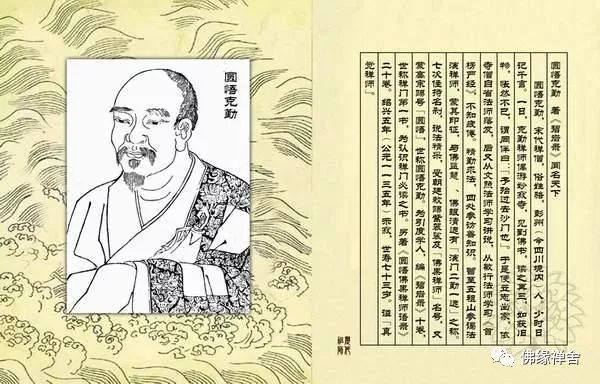 圆悟克勤
圆悟克勤 著《碧岩录》闻名天下
圆悟克勤，宋代禅僧，俗姓骆，彭州（今四川境内）人，少时日
记千言。一日，克勤禅师偶游妙寂寺，见到佛书，读之再三，如获旧
物，怅然不已，谓同伴曰：“予殆过去沙门也”。于是便立志出家，依
寺僧自省法师落发，后又从文照法师学习讲说，从敏行法师学习《首
楞严经》，不知疲倦。精勤求法，四处参访善知识。曾至五祖山参谒法
演禅师，蒙其印证，与佛鉴慧、佛眼清远有“演门二勤一远”之称。
七次住持名刹，说法精采，受朝廷敕赐紫袈裟及“佛果禅师”名号，又
蒙高宗赐号“圆悟”，世称圆悟克勤。为引度学人，编《碧岩录》十卷，
世称禅门第一书，为认识禅门必读之书。另著《圆悟佛果禅师语录》
二十卷。绍兴五年（公元一一三五年）示寂，世寿七十三岁，谥“真
觉禅师”。
佛缘禅舍